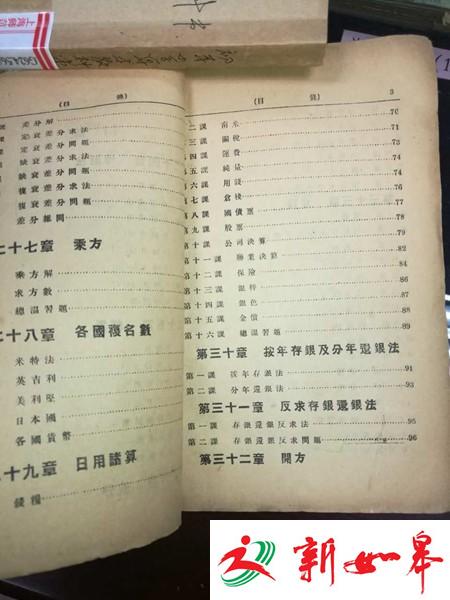 上海郵
(目錄)
差分解
定衰差分求法
定衰差分問題
缺衰差分求法
缺衰差分問題
復衰差分求法
復衰差分問題
差分雜問
二十七章 乘方
乘方解
求方數
總温習題
二十八章 各國複名數
米特法
英吉利
美利堅
日本國
各國貨幣
十九章 日用諸算
錢糧
(目錄) 3
二課 南米 70
三課 關稅 71
第四課 運費 73
第五課 純量 74
第六課 用錢 74
第七課 倉棧 76
第八課 國債票 77
第九課 股票 78
第十課 公司決算 79
第十一課 聯業決算 82
第十二課 保險 84
第十三課 銀特 86
第十四課 銀色 87
第十五課 金價 88
第十六課 總温習題 89
第三十章 按年存銀及分年還銀法
第一課 按年存銀法 91
第二課 分年還銀法 93
第三十一章 反求存銀還銀法
第一課 存銀還銀反求法 95
第二課 存銀還銀反求問題 96
第三十二章 開方
新如皋